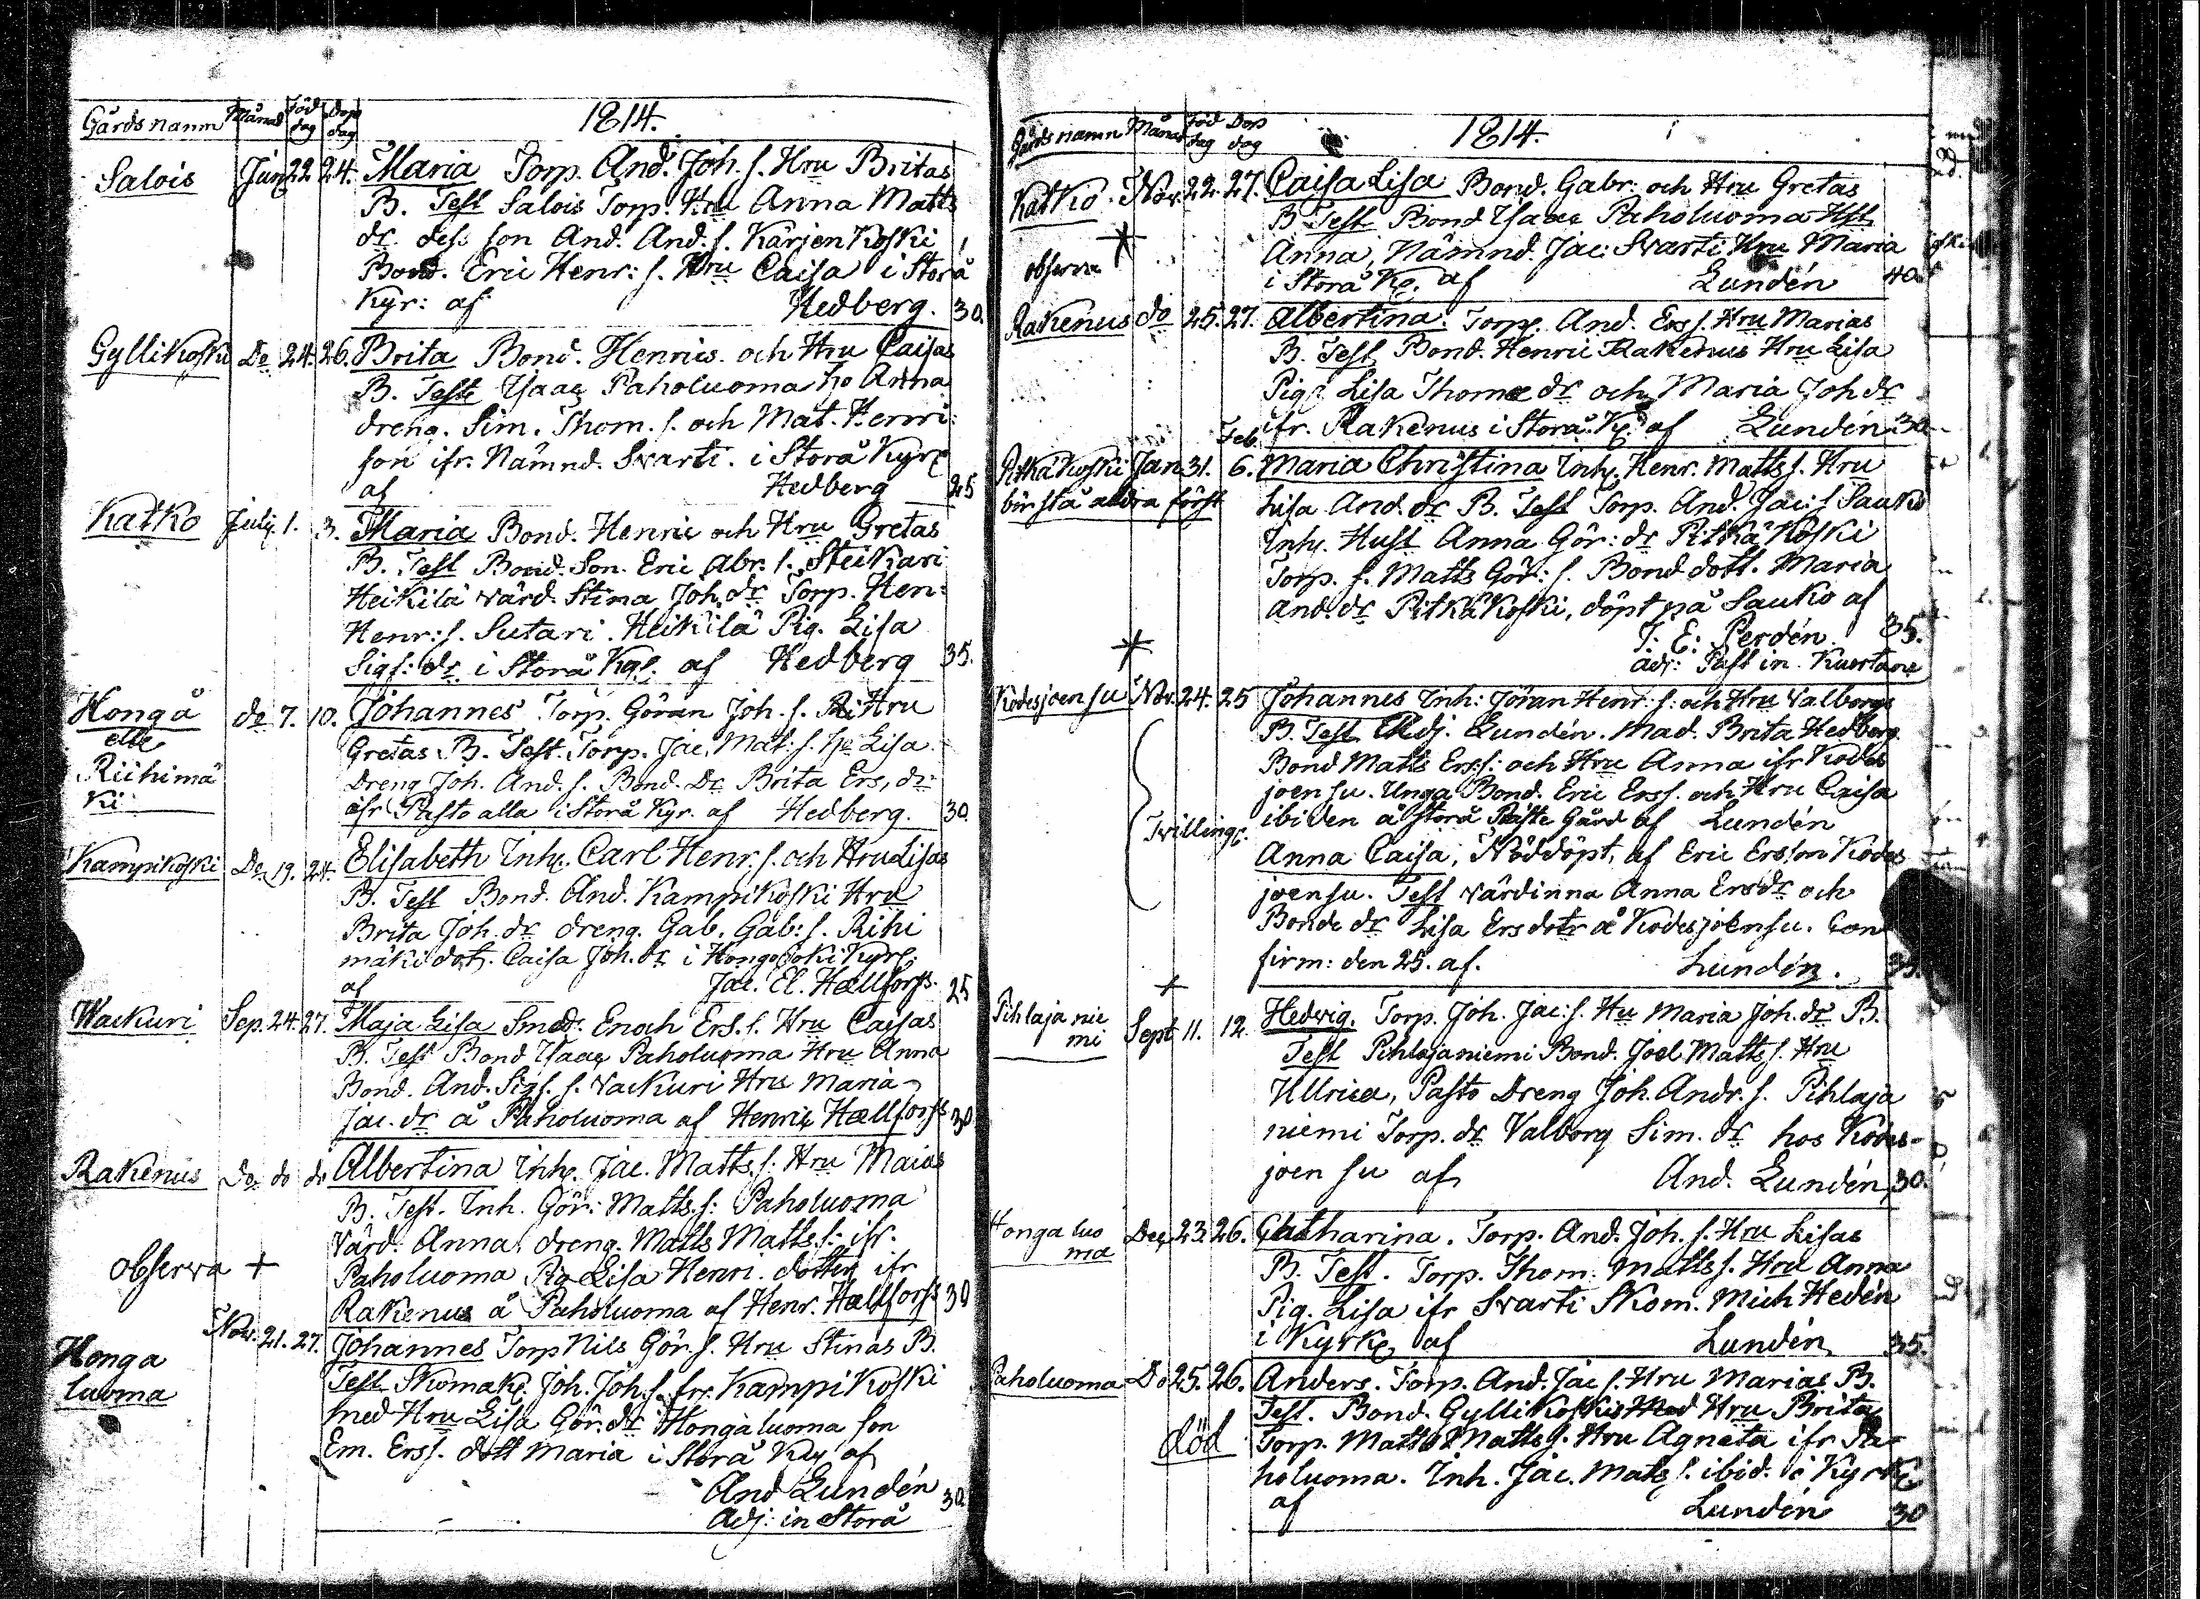 Gårds namn Månad Föd dag Döp dag 1814.
Salois Jun 22 24. Maria Torp. And. Joh. s. Hru Britas
B. Test Salois Torp. Hru Anna Matts
dr. des: son And. And. s. Kärjen Koski,
Bond. Eric Henr: s. Hru Caisa i Storå
Kyr: af Hedberg. 30.
Gyllikoski De 24. 26. Brita Bond. Henrics och Hru Caisas
B. Test Isaac Paholuoma ho Anna
dreng. Sim. Thom. s. och Mat. Henri:
son ifr. Nämnd. Svarti. i Storå Kyrk
af Hedberg 25
Katko July. 1. 3. Maria Bond. Henric och Hru Gretas
B. Test Bond. Son. Eric Abr. s. Steikari
Heikilä värd. Stina Joh. dr Torp. Hen:
Henr: s. Sutari. Heikilä Pig. Lisa
Sigs: dr i Storå Kyr: af Hedberg 35.
Hongå eller Riihimä ki de 7. 10. Johannes Torp. Göran Joh. s. Hru
Gretas B. Test. Torp. Jac. Mat: s. Lisa
Dreng Joh. And. s. Bond. Dr Brita Ers. dr
ifr Pasto alla i Storå Kyr. af Hedberg. 30.
Kampikoski De. 19. 24. Elisabeth Inh. Carl Henr. s. och Hru Lisas
B. Test Bond. And. Kampikoski Hru
Brita Joh. dr dreng. Gab. Gab: s. Rihi
mäki dot. Caisa Joh. dr i Hongojoki Kyrk:
af Jac. El. Hællfors. 25
Wackuri Sep. 24. 27. Maja Lisa Smed. Enoch Ers. s. Hru Caisas
B. Test Bond Isaac Paholuoma Hru Anna
Bond. And. Sigf. s. Vackuri Hru Maria
Jac. dr å Paholuoma af Henric Hællforss 30
Rakenus Do do do Albertina Inh. Jac. Matts. s: Hru Maias
B. Test. Inh. Gör: Matts. s: Paholuoma
Värd. Anna, dreng. Matts Matts. s: ifr.
observa + Paholuoma Pig Lisa Henri. dotter ifr
Rakenus å Paholuoma af Henr. Hællforss 30
Honga luoma Nov. 21. 27. Johannes Torp Nils Gör. s. Hru Stinas B.
Test Skomak. Joh. Joh. s. fr. Kampikoski
med Hru Lisa Gör. dr Hongaluoma son
Em. Erss. dott Maria i Storå Kyr af
And Lundén 30.
Adj: in Storå
Gårds namn Månad Föd dag Dop dag 1814.
Katko. Nov. 22. 27. Caisa Lisa Bond. Gabr: och Hru Gretas
B Test Bond Isaac Paholuoma Hst
observa Anna, Nämnd. Jac: Svarti Hru Maria
i Storå Ky. af Lundén 40
Rakenus do 25. 27. Albertina. Torp. And. Ers s. Hru Marias
B. Test Bond. Henric Rakenus Hru Lisa
Pig: Lisa Thomæ dr och Maria Joh dr
ifr. Rakenus i Storå Ky. af Lundén 30
Pitkäkoski Jan 31. Feb. 6. Maria Christina Inh. Henr. Matts s. Hru
bör stå aldra först Lisa And. dr B. Test Torp. And. Jac: s Sauko
Inh. Hust Anna Gör: dr Pitkä Koski
Torp. s. Matts Gör: s. Bond dott. Maria
And. dr PitkäKoski, döpt på Sauko af
T. E. Perdén. 35.
adj: Past in Kuortane
Kodesjoensu Nov. 24. 25 Johannes Inh: Jöran Henr: s: och Hru Valborgs
B. Test Adj. Lundén. Mad. Brita Hedberg.
Bond Matts Ers: s: och Hru Anna ifr Kodes
joensu. Unga Bond. Eric Erss. och Hru Caisa
Tvillingr. ibiden å Storå Präste Gård af Lundén
Anna Caisa, Nöddöpt, af Eric Ersson Kodes
joensu. Test värdinna Anna Ersdr och
Bonde dr Lisa Ersdotr å Kodesjoensu. Con
firm: den 25. af. Lundén. 35.
Pihlajanie mi Sept 11. 12. Hedvig. Torp. Joh. Jac: s. Hu Maria Joh. dr B.
Test Pihlajaniemi Bond. Joel Matts s. Hru
Ullrica, Pasto Dreng Joh. Andr. s. Pihlaja
niemi Torp. dr Valborg Sim. dr hos Kodes-
joensu af And. Lundén 30.
Honga luo ma Dec 23. 26. Catharina. Torp. And. Joh. s. Hru Lisas
B. Test. Torp. Thom: Matts s. Hru Anna
Pig. Lisa ifr Svarti Skom. Mich Hedén
i Kyrk. af Lundén 35.
Paholuoma Do 25. 26. Anders. Torp. And. Jac s. Hru Marias B.
Test. Bond. Gyllikoski Hru Brita
död Torp. Matts Matts s. Hru Agneta ifr Pa-
holuoma. Inh. Jac. Mats s. ibid. i Kyrk
af Lundén 30